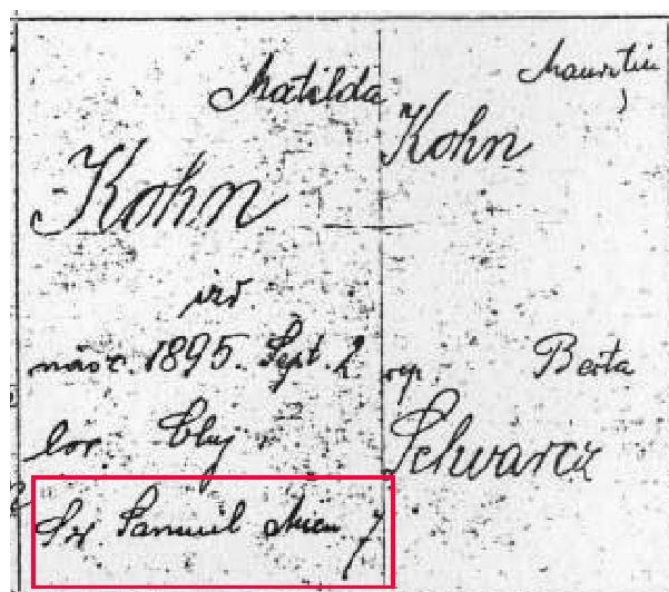 Matilda
Kohn
izr.
născ. 1895. Sept. 2
loc. Cluj
Str Samuil Micu 7
Mauritiu
Kohn
rep.
Berta
Schwarcz